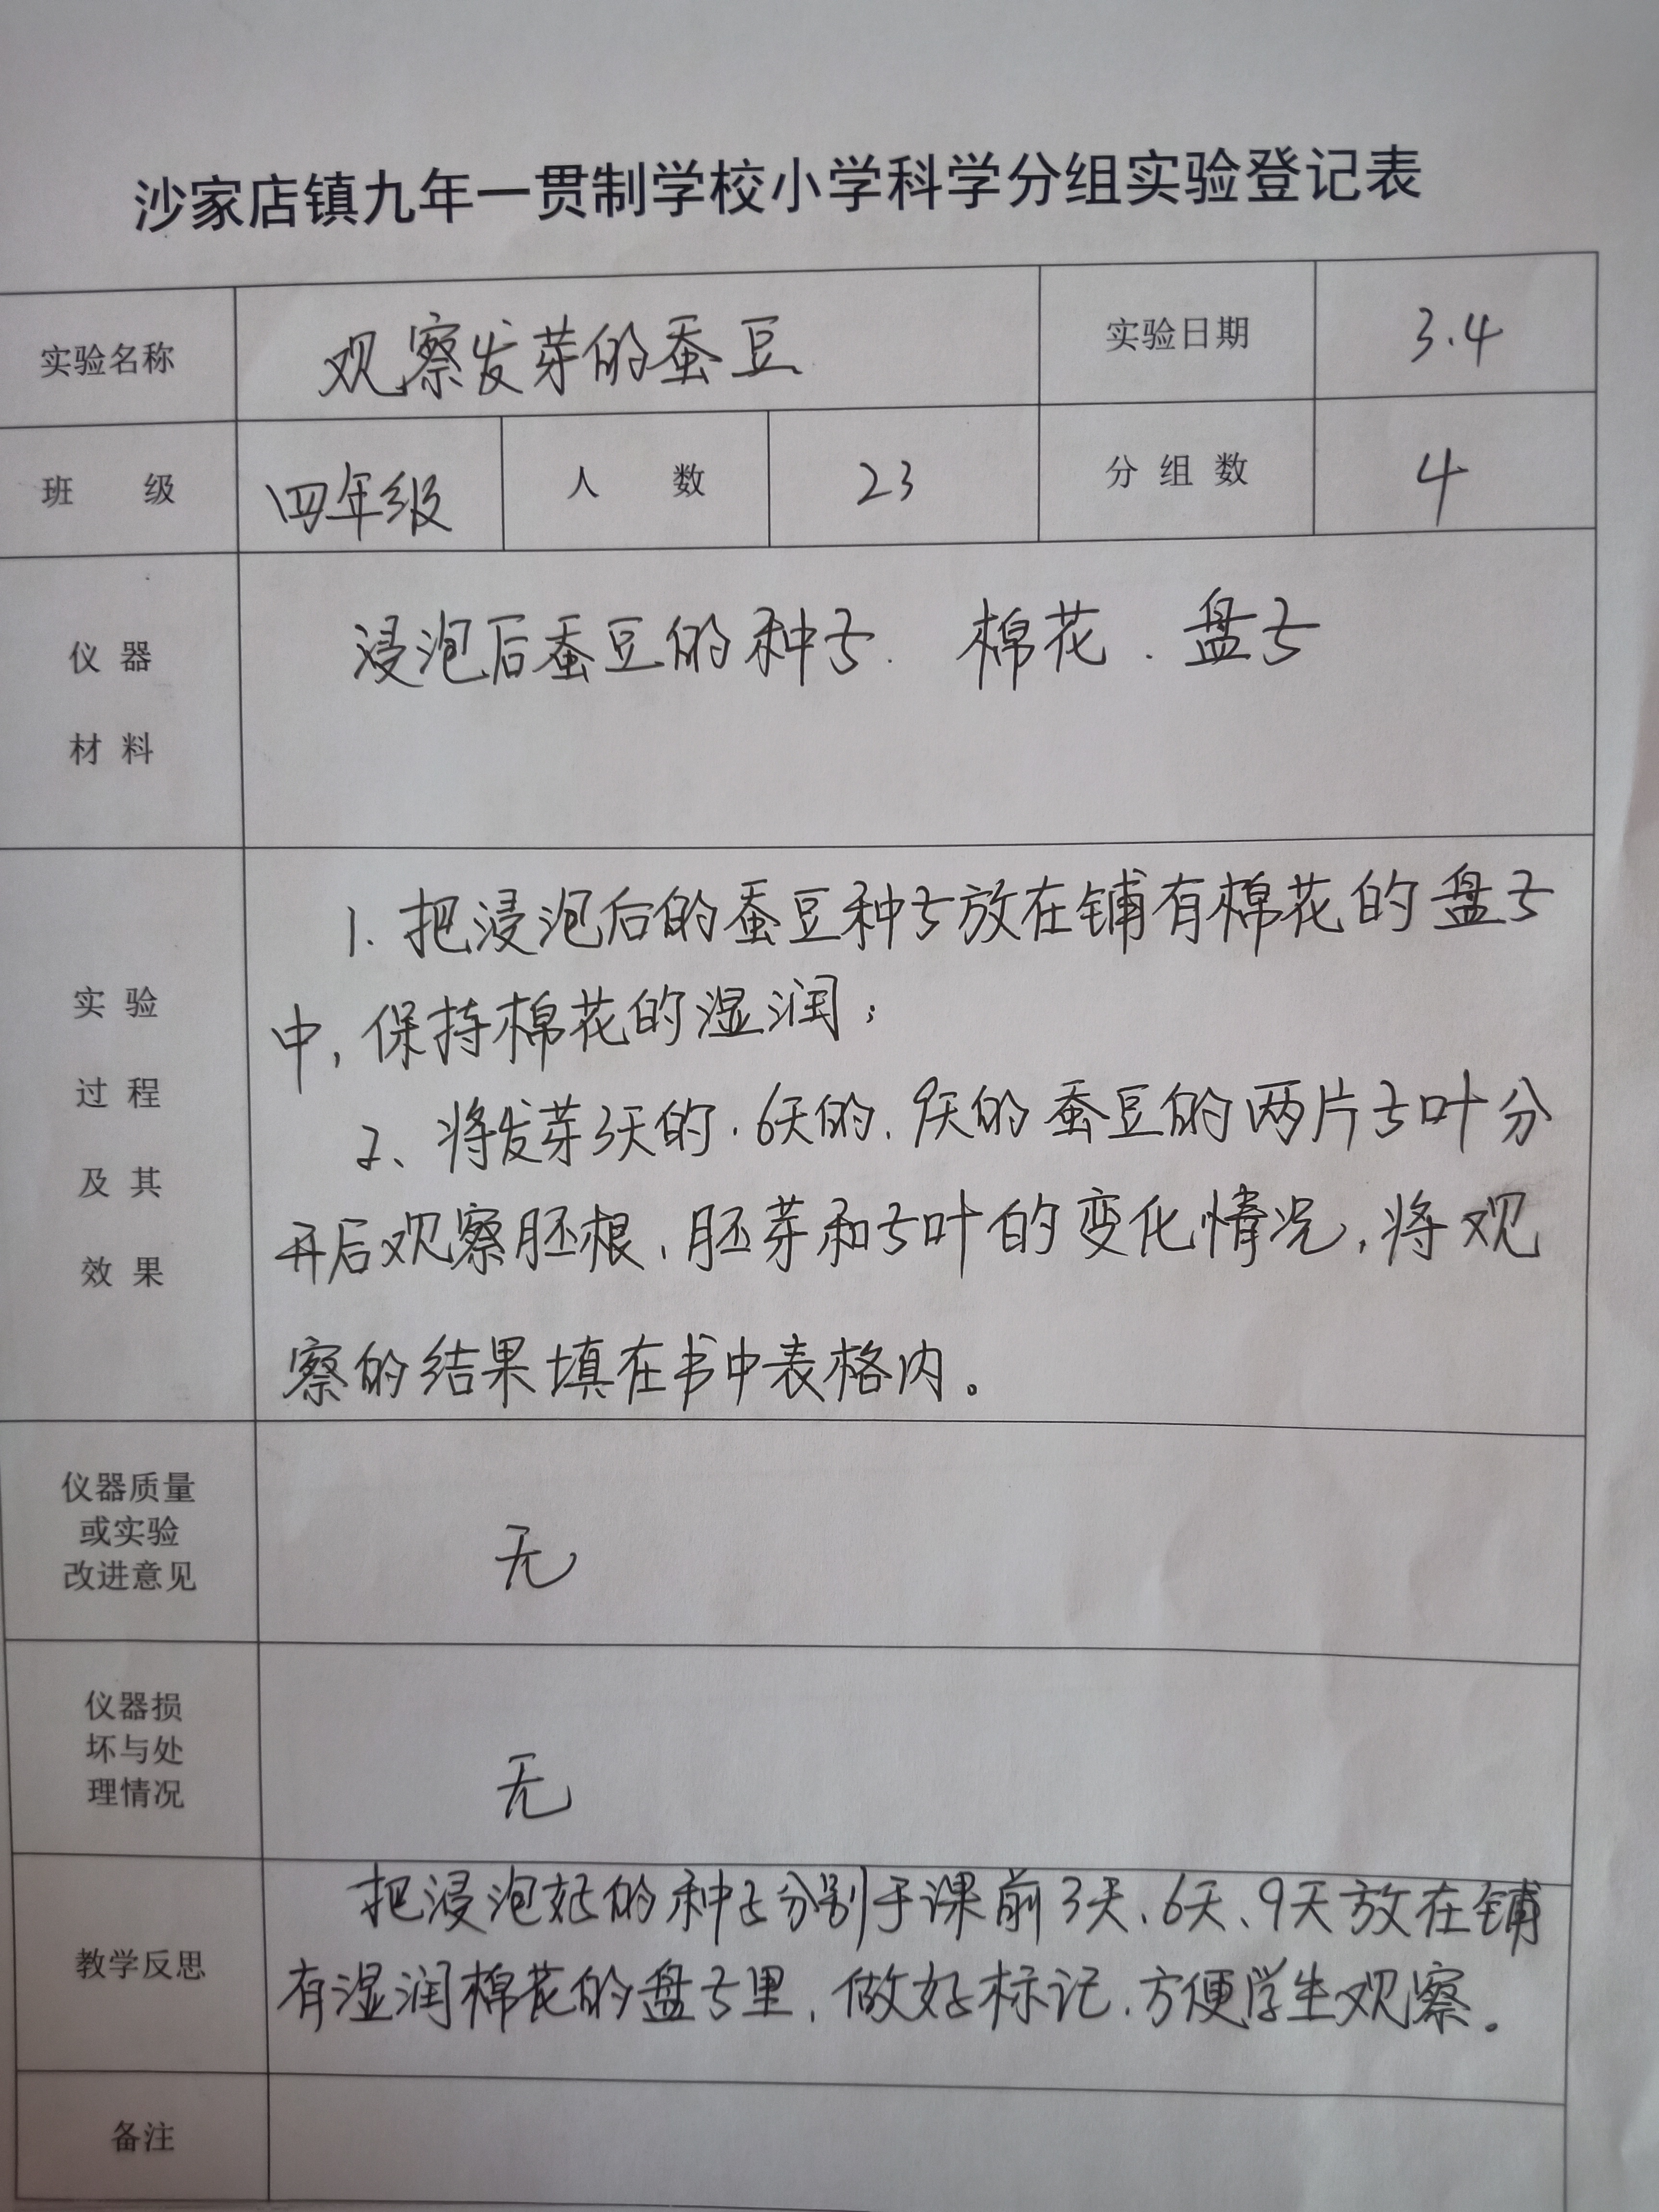 沙家店镇九年一贯制学校小学科学分组实验登记表
实验名称 观察发芽的蚕豆 实验日期 3.4
班 级 四年级 人 数 23 分组数 4
仪器
材料
浸泡后蚕豆的种子. 棉花. 盘子
实验
过程
及其
效果
1. 把浸泡后的蚕豆种子放在铺有棉花的盘子
中,保持棉花的湿润;
2、将发芽3天的.6天的.9天的蚕豆的两片子叶分
开后观察胚根、胚芽和子叶的变化情况,将观
察的结果填在书中表格内。
仪器质量
或实验
改进意见
无
仪器损
坏与处
理情况
无
教学反思
把浸泡好的种子分别于课前3天、6天、9天放在铺
有湿润棉花的盘子里,做好标记,方便学生观察。
备注